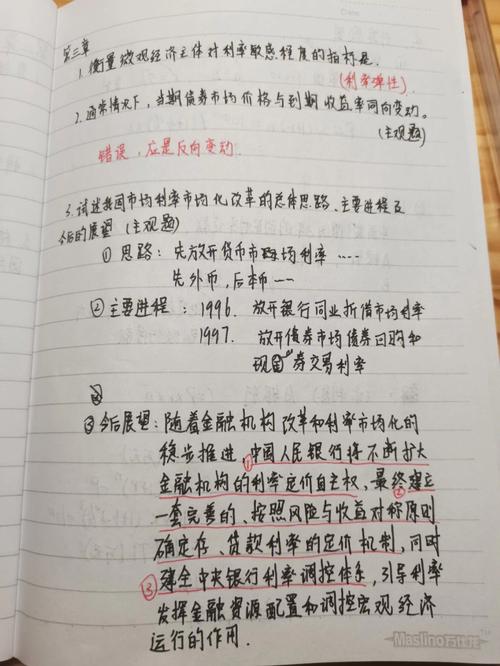 第三章
1. 衡量微观经济主体对利率敏感程度的指标是.
(利率弹性)
2. 通常情况下,当期债券市场价格与到期收益率同向变动。
(主观题)
错误,应是反向变动.
3. 试述我国市场利率市场化改革的总体思路、主要进程及
今后的展望 (主观题)
① 思路: 先放开货币市场利率 ....
先外币,后本币 ——
② 主要进程: 1996. 放开银行同业拆借市场利率
1997. 放开债券市场债券回购和
现券交易利率
③ 今后展望: 随着金融机构改革和利率市场化的
稳步推进,①中国人民银行将不断扩大
金融机构的利率定价自主权,最终②建立
一套完善的、按照风险与收益对称原则
确定存、贷款利率的定价机制,同时
③健全中央银行利率调控体系,引导利率
发挥金融资源配置和调控宏观经济
运行的作用.
Date